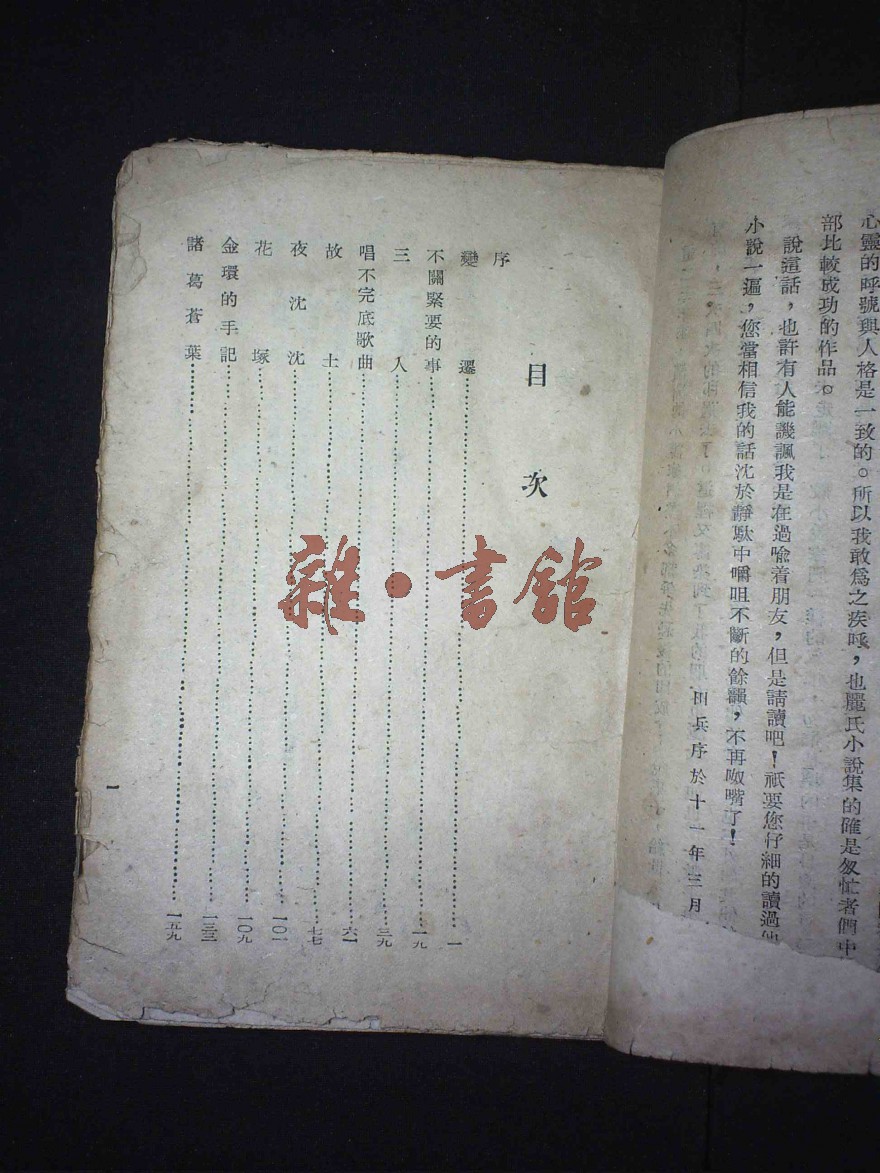 心靈的呼號與人格是一致的。所以我敢爲之疾呼，也麗氏小說集的確是匆忙者們中
部比較成功的作品。
說這話，也許有人能譏諷我是在過喻着朋友，但是請讀吧！祇要您仔細的讀過他
小說一遍，您當相信我的話沈於靜默中嚼咀不斷的餘韻，不再呶嘴了！
田兵序於十一年三月
目次
序
變遷 一
不關緊要的事 一九
三人 三九
唱不完底歌曲 六一
故土 七七
夜沈沈 一〇一
花塚 一〇九
金環的手記 一三三
諸葛蒼葉 一五九
一
雜·書館